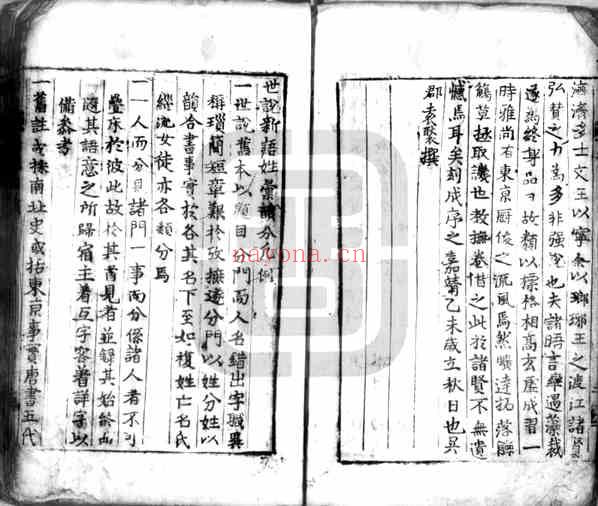 濟濟多士文王以寧余以瑯琊王之渡江諸賢
弘贊之力為多非強說也夫諸晤言率遇藻裁
遂為終身品目故類以標格相高玄虛成習一
時雅尚有東京厨俊之流風焉然曠達拓落濫
觴莫拯取譏世教撫卷惜之此於諸賢不無遺
憾焉耳矣刻成序之嘉靖乙未歲立秋日也吳
郡袁褧撰
世說新語姓彙韻分凡例
一世說舊本以題目分門而人名錯出字號異
稱瑣簡短章艱於攷撫遂分門以姓分姓以
韻合書事實於各其名下至如複姓亡名氏
緇流女徒亦各類分焉
一一人而分見諸門一事而分係諸人者不可
疊床於彼此故於其首見者並錄其始終而
隨其語意之所歸宿主着互字客着詳字以
備參考
一舊註或採南北史或括東京事實唐書五代
nayona.cn